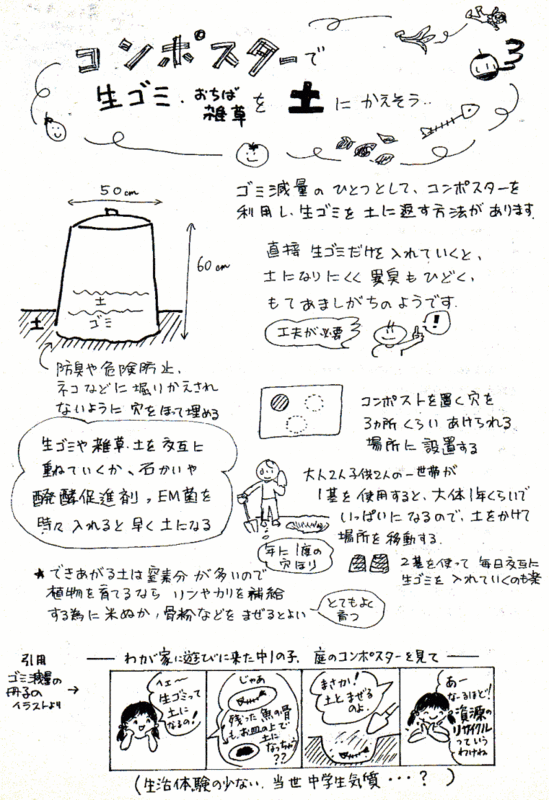 コンポスターで
生ゴミ、おちば雑草を土にかえそう‥
50cm
60cm
土
ゴミ
土
ゴミ減量のひとつとして、コンポスターを
利用し、生ゴミを土に返す方法があります。
直接生ゴミだけを入れていくと、
土になりにくく異臭もひどく、
もてあましがちのようです。
工夫が必要
!
防臭や危険防止、
ネコなどに堀りかえされ
ないように穴をほって埋める
コンポストを置く穴を
3カ所くらいあけられる
場所に設置する
生ゴミや雑草、土を交互に
重ねていくか、石かいや
醗酵促進剤、EM菌を
時々入れると早く土になる
大人2人子供2人の一世帯が
1基を使用すると、大体1年くらいで
いっぱいになるので、土をかけて
場所を移動する。
年に1度の
穴ほり
2基を使って毎日交互に
生ゴミを入れていくのも楽
★できあがる土は窒素分が多いので
植物を育てるならリンやカリを補給
する為に米ぬか、骨粉などをまぜるとよい
とてもよく
育つ
引用
ゴミ減量の
冊子の
イラストより
わが家に遊びに来た中1の子、庭のコンポスターを見て
へぇ〜
生ゴミって
土に
なるの!
じゃあ
残った魚の骨
も、お皿の上で
土に
なっちゃう
??
まさか!
土とまぜる
のよ。
あー
なーるほど!
資源の
リサイクル
っていう
わけね
(生活体験の少ない、当世中学生気質・・・?)